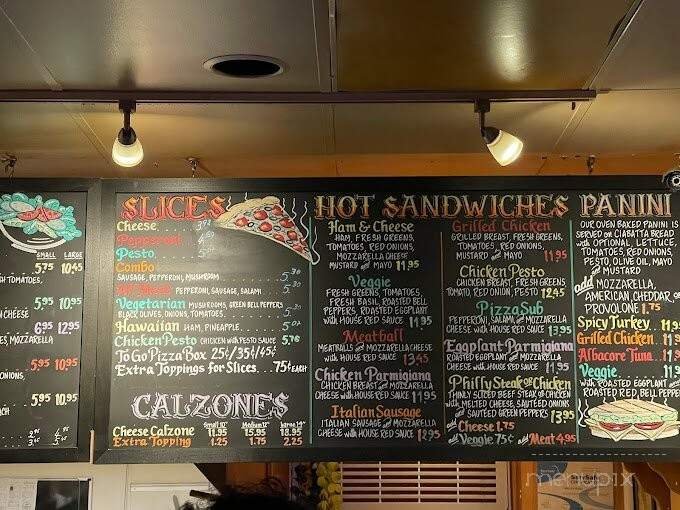 SMALL LARGE
5.75 10.45
H TOMATOES,
5.95 10.95
N CHEESE
6.95 12.95
ES, MOZZARELLA
5.95 10.95
ONIONS,
5.95 10.95
ACH
SLICES
Cheese
Pepperoni
Pesto
Combo
SAUSAGE, PEPPERONI, MUSHROOM
PEPPERONI, SAUSAGE, SALAMI
Vegetarian MUSHROOMS, GREEN BELL PEPPERS
BLACK OLIVES, ONIONS, TOMATOES
Hawaiian HAM, PINEAPPLE
Chicken Pesto CHICKEN with PESTO SAUCE 5.76
To Go Pizza Box 25¢/35¢/45¢
Extra Toppings for Slices...75¢ EACH
CALZONES
Small 10" Medium 12" Large 14"
Cheese Calzone 11.95 15.95 18.95
Extra Topping 1.25 1.75 2.25
HOT SANDWICHES
Ham & Cheese
HAM, FRESH GREENS,
TOMATOES, RED ONIONS,
MOZZARELLA CHEESE
MUSTARD and MAYO 11.95
Veggie
FRESH GREENS, TOMATOES,
FRESH BASIL, ROASTED BELL
PEPPERS, ROASTED EGGPLANT
with HOUSE RED SAUCE 11.95
Meatball
MEATBALLS and MOZZARELLA CHEESE
with HOUSE RED SAUCE 13.45
Chicken Parmigiana
CHICKEN BREAST and MOZZARELLA
CHEESE with HOUSE RED SAUCE 11.95
Italian Sausage
ITALIAN SAUSAGE and MOZZARELLA
CHEESE with HOUSE RED SAUCE 12.95
Grilled Chicken
GRILLED BREAST, FRESH GREENS,
TOMATOES, RED ONIONS,
MUSTARD and MAYO 11.95
Chicken Pesto
CHICKEN BREAST, FRESH GREENS
TOMATO, RED ONION, PESTO 12.45
Pizza Sub
PEPPERONI, SALAMI, and MOZZARELLA
CHEESE with HOUSE RED SAUCE 13.95
Eggplant Parmigiana
ROASTED EGGPLANT and MOZZARELLA
CHEESE with HOUSE RED SAUCE 11.95
Philly Steak or Chicken
THINLY SLICED BEEF STEAK OR CHICKEN
with MELTED CHEESE, SAUTEED ONIONS
and SAUTEED GREEN PEPPERS 13.95
add Cheese 1.75
add Veggie 75¢ add Meat 4.95
PANINI
OUR OVEN BAKED PANINI IS
SERVED ON CIABATTA BREAD
with OPTIONAL LETTUCE,
TOMATOES, RED ONIONS,
PESTO, OLIVE OIL, MAYO
and MUSTARD
add MOZZARELLA,
AMERICAN, CHEDDAR, or
PROVOLONE 1.75
Spicy Turkey
Grilled Chicken
Albacore Tuna
Veggie
with ROASTED EGGPLANT and
ROASTED RED BELL PEPPER
menupix